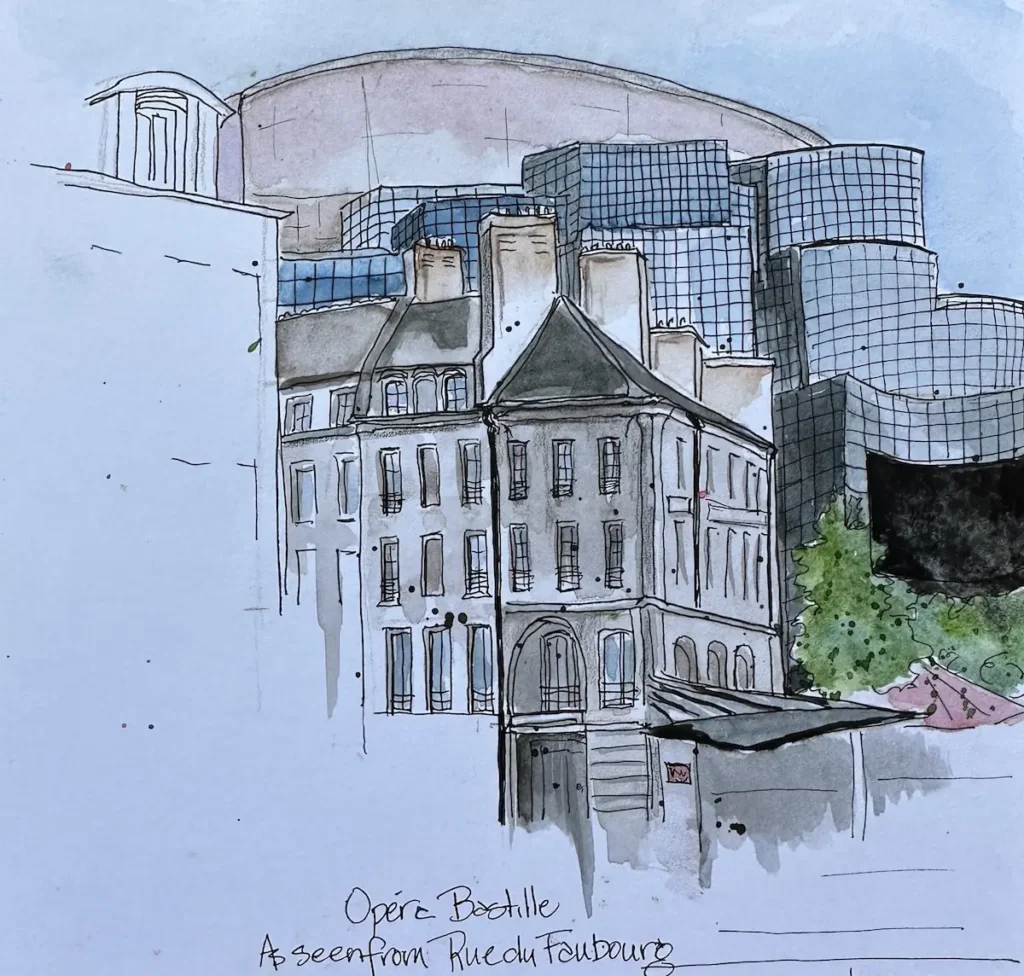 Opéra Bastille
As seen from Rue du Faubourg